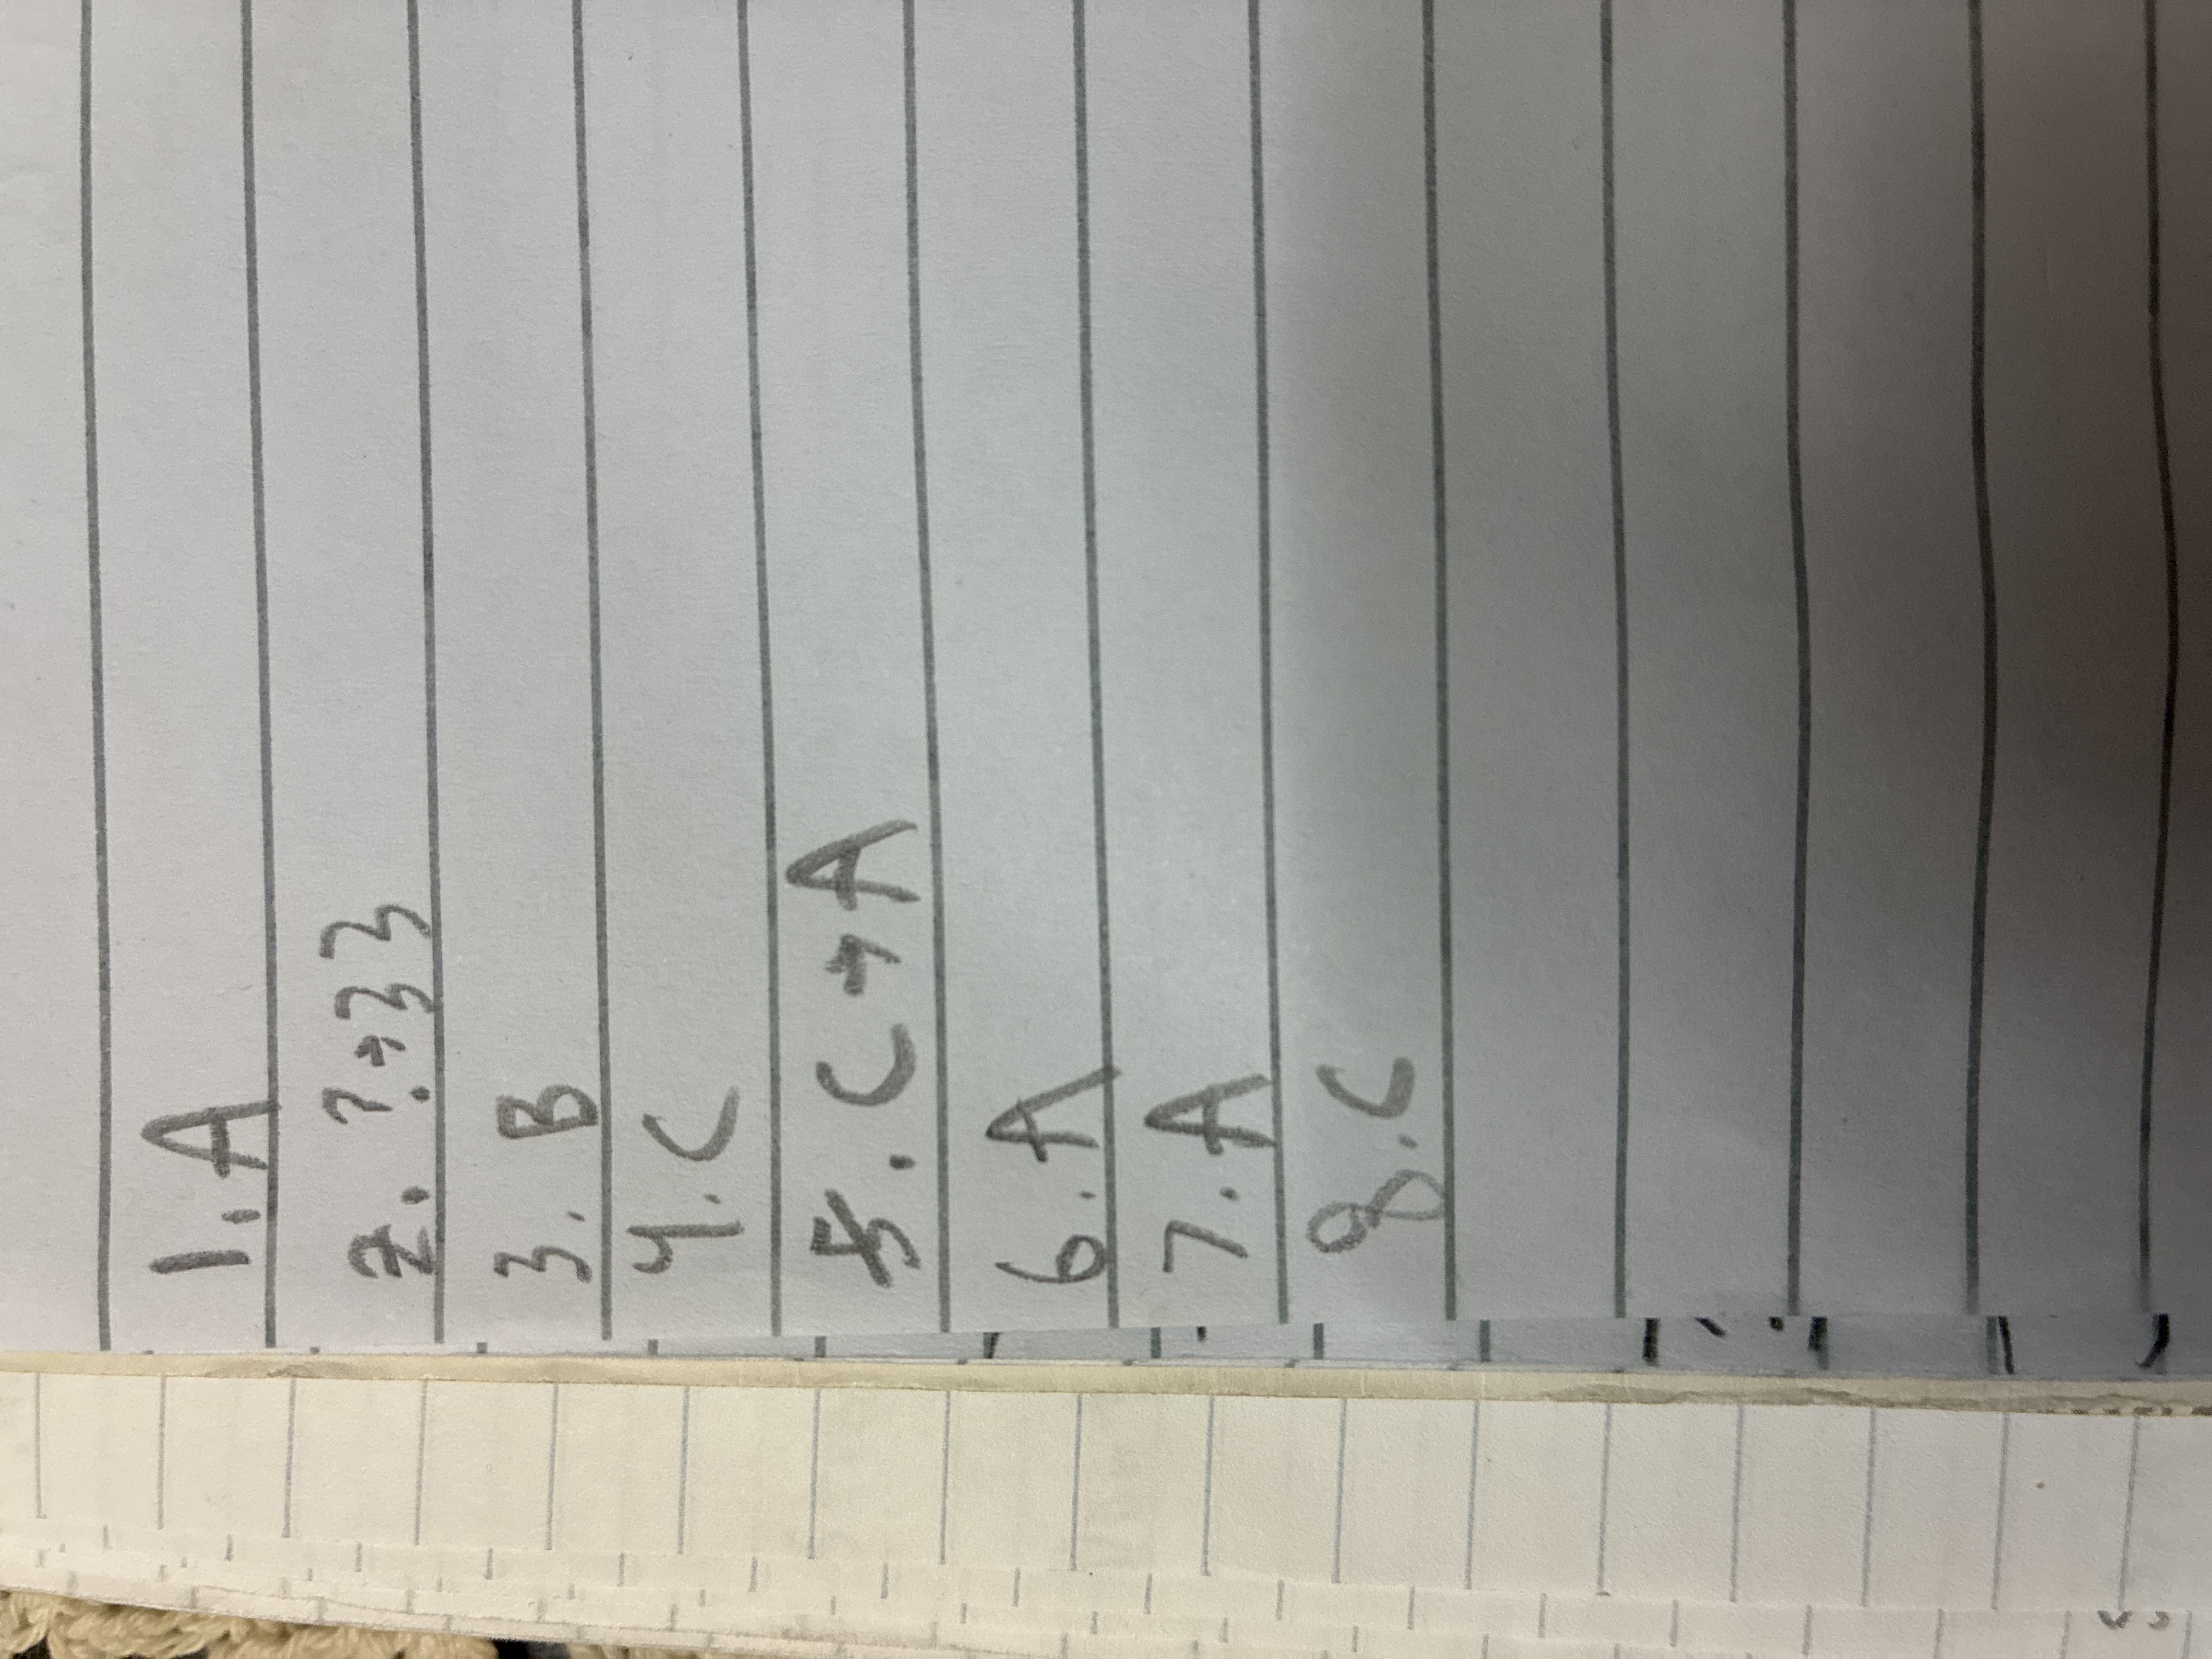 1. A
2. ? → 33
3. B
4. C
5. C → A
6. A
7. A
8. C